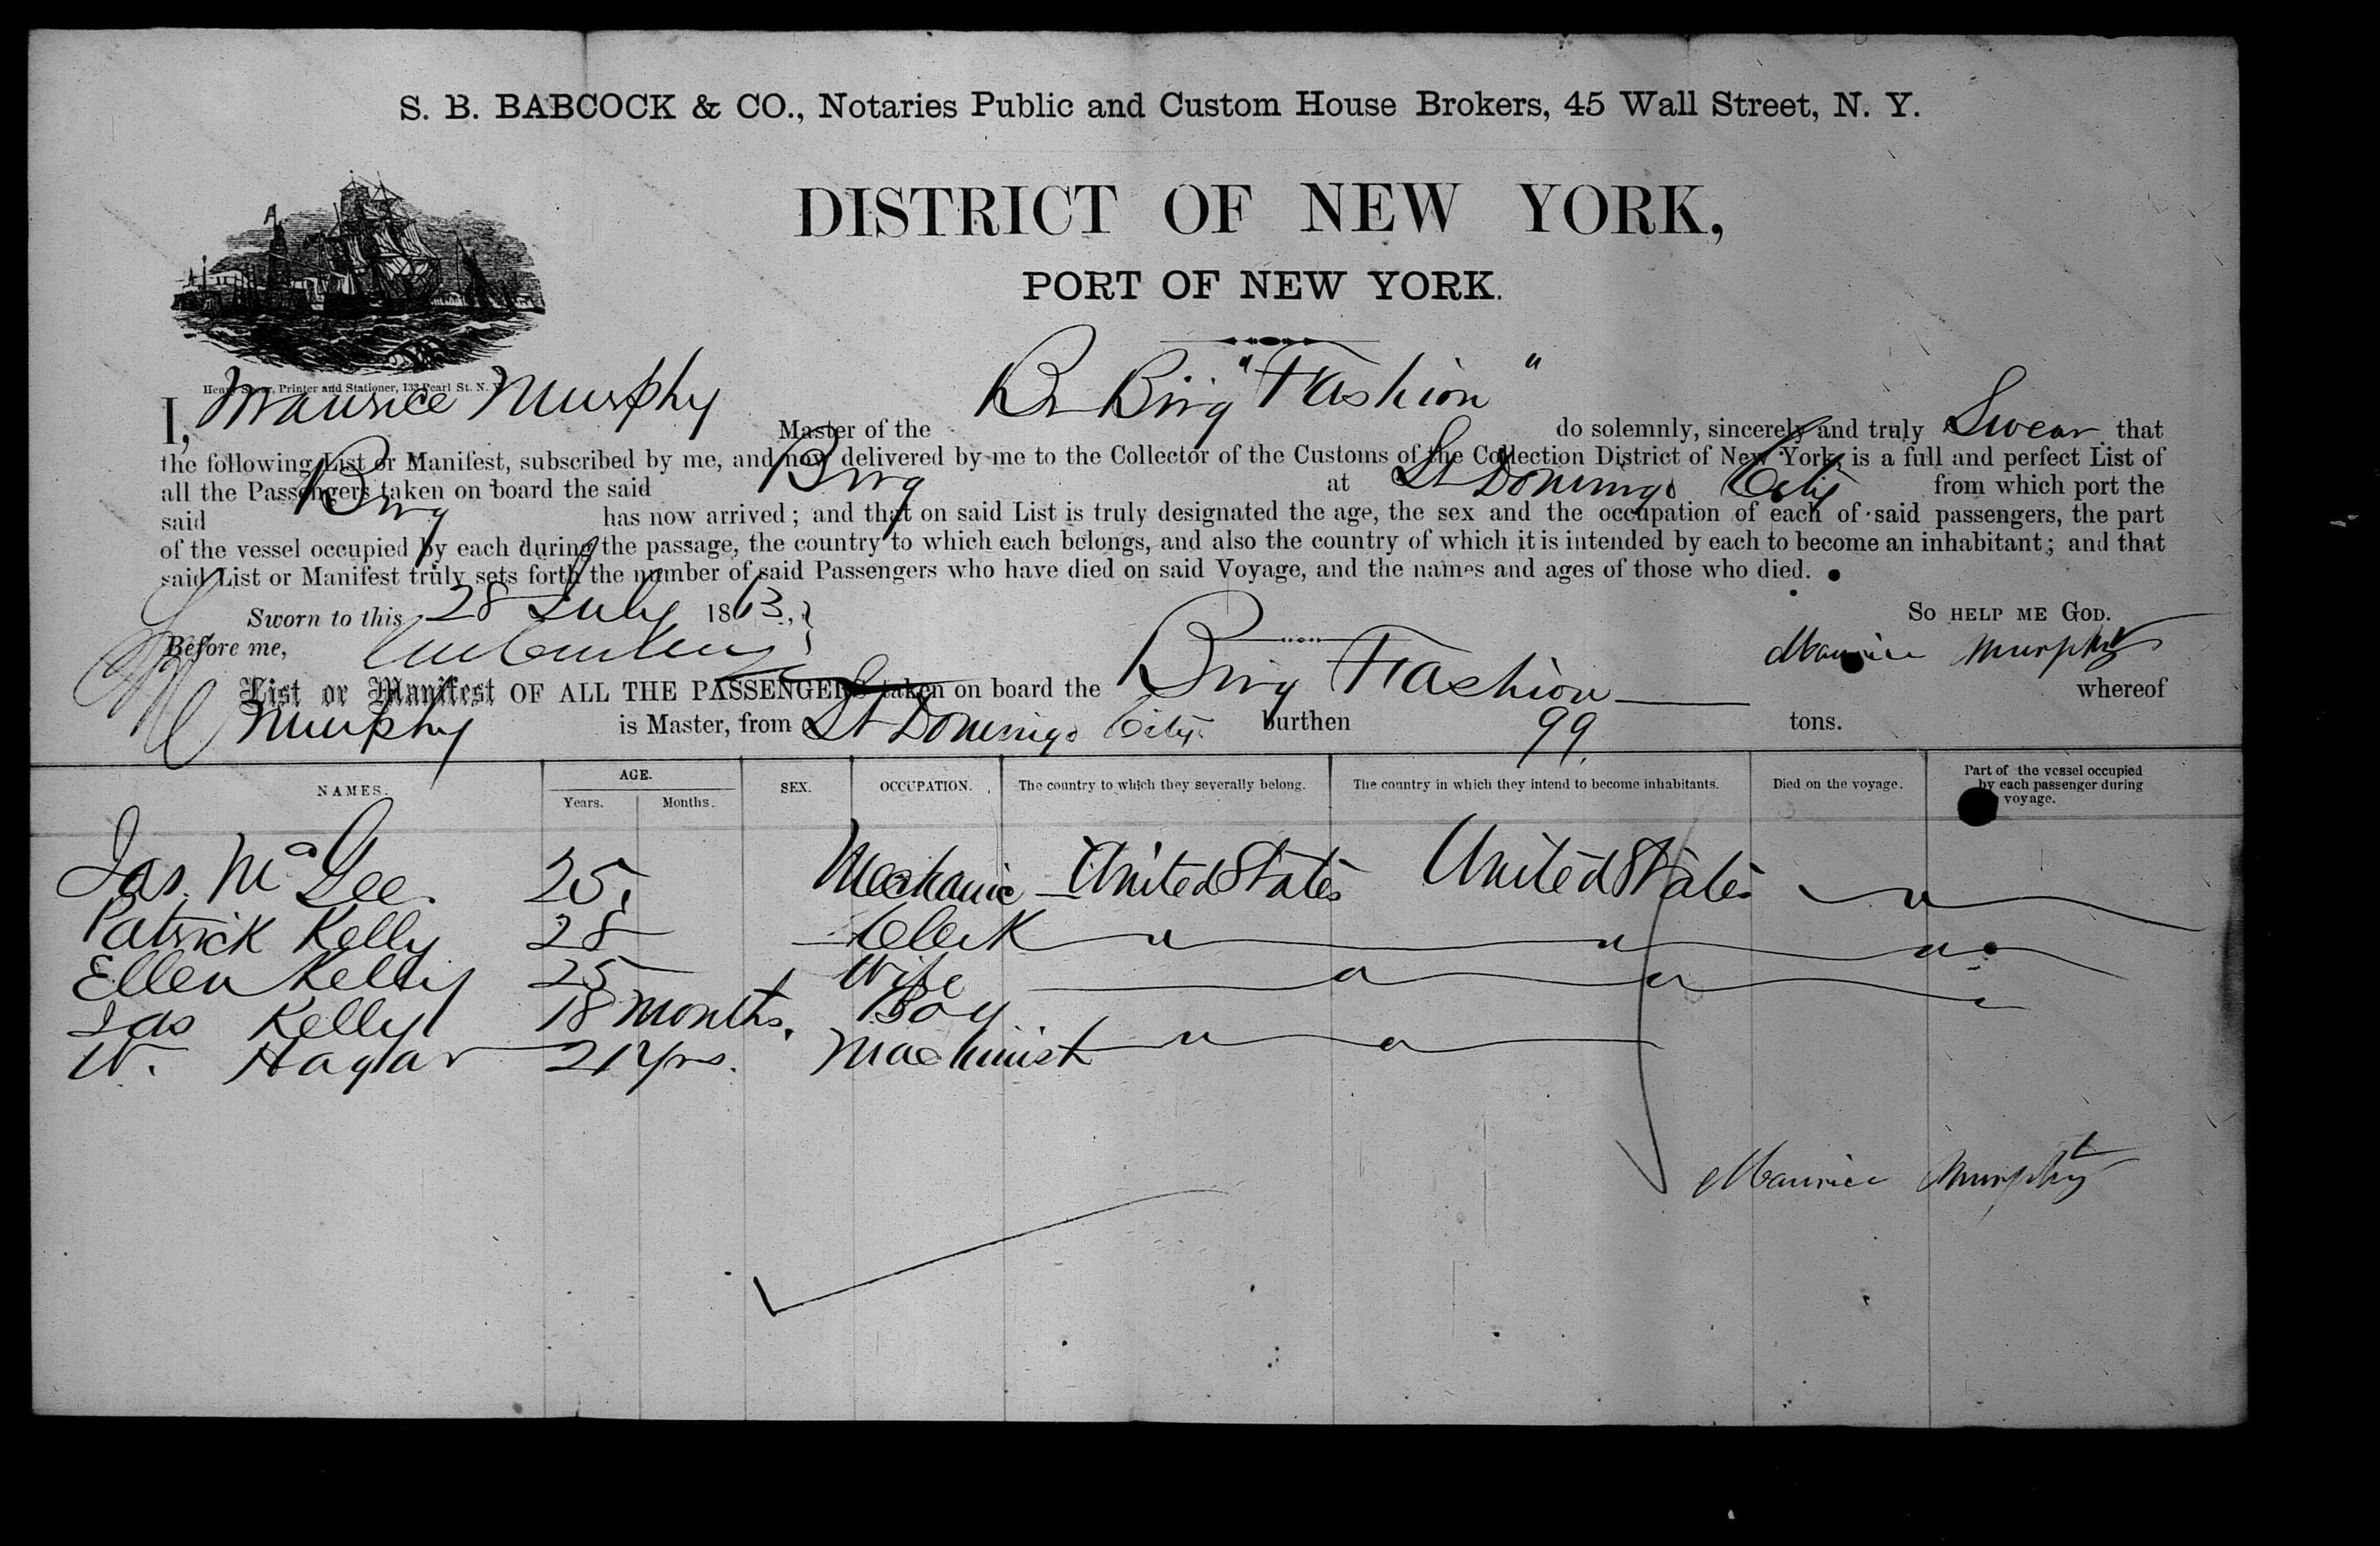 S. B. BABCOCK & CO., Notaries Public and Custom House Brokers, 45 Wall Street, N. Y.
DISTRICT OF NEW YORK,
PORT OF NEW YORK.
Printer and Stationer, 133 Pearl St. N. Y.
I, Maurice Murphy Master of the Br Brig "Fashion" do solemnly, sincerely and truly Swear that
the following List or Manifest, subscribed by me, and now delivered by me to the Collector of the Customs of the Collection District of New York, is a full and perfect List of
all the Passengers taken on board the said Brig at St Domingo City from which port the
said Brig has now arrived; and that on said List is truly designated the age, the sex and the occupation of each of said passengers, the part
of the vessel occupied by each during the passage, the country to which each belongs, and also the country of which it is intended by each to become an inhabitant; and that
said List or Manifest truly sets forth the number of said Passengers who have died on said Voyage, and the names and ages of those who died.
Sworn to this 28 July 1863, SO HELP ME GOD.
Before me, Maurice Murphy
List or Manifest OF ALL THE PASSENGERS taken on board the Brig Fashion whereof
Murphy is Master, from St Domingo City burthen 99 tons.
NAMES. AGE. Years. Months. SEX. OCCUPATION. The country to which they severally belong. The country in which they intend to become inhabitants. Died on the voyage. Part of the vessel occupied by each passenger during voyage.
Jas. McGee 25, Mechanic United States United States "
Patrick Kelly 28 Clerk " " "
Ellen Kelly 25 Wife " "
Jas Kelly 18 months. Boy
W. Hagar 21 yrs. Machinist " "
Maurice Murphy